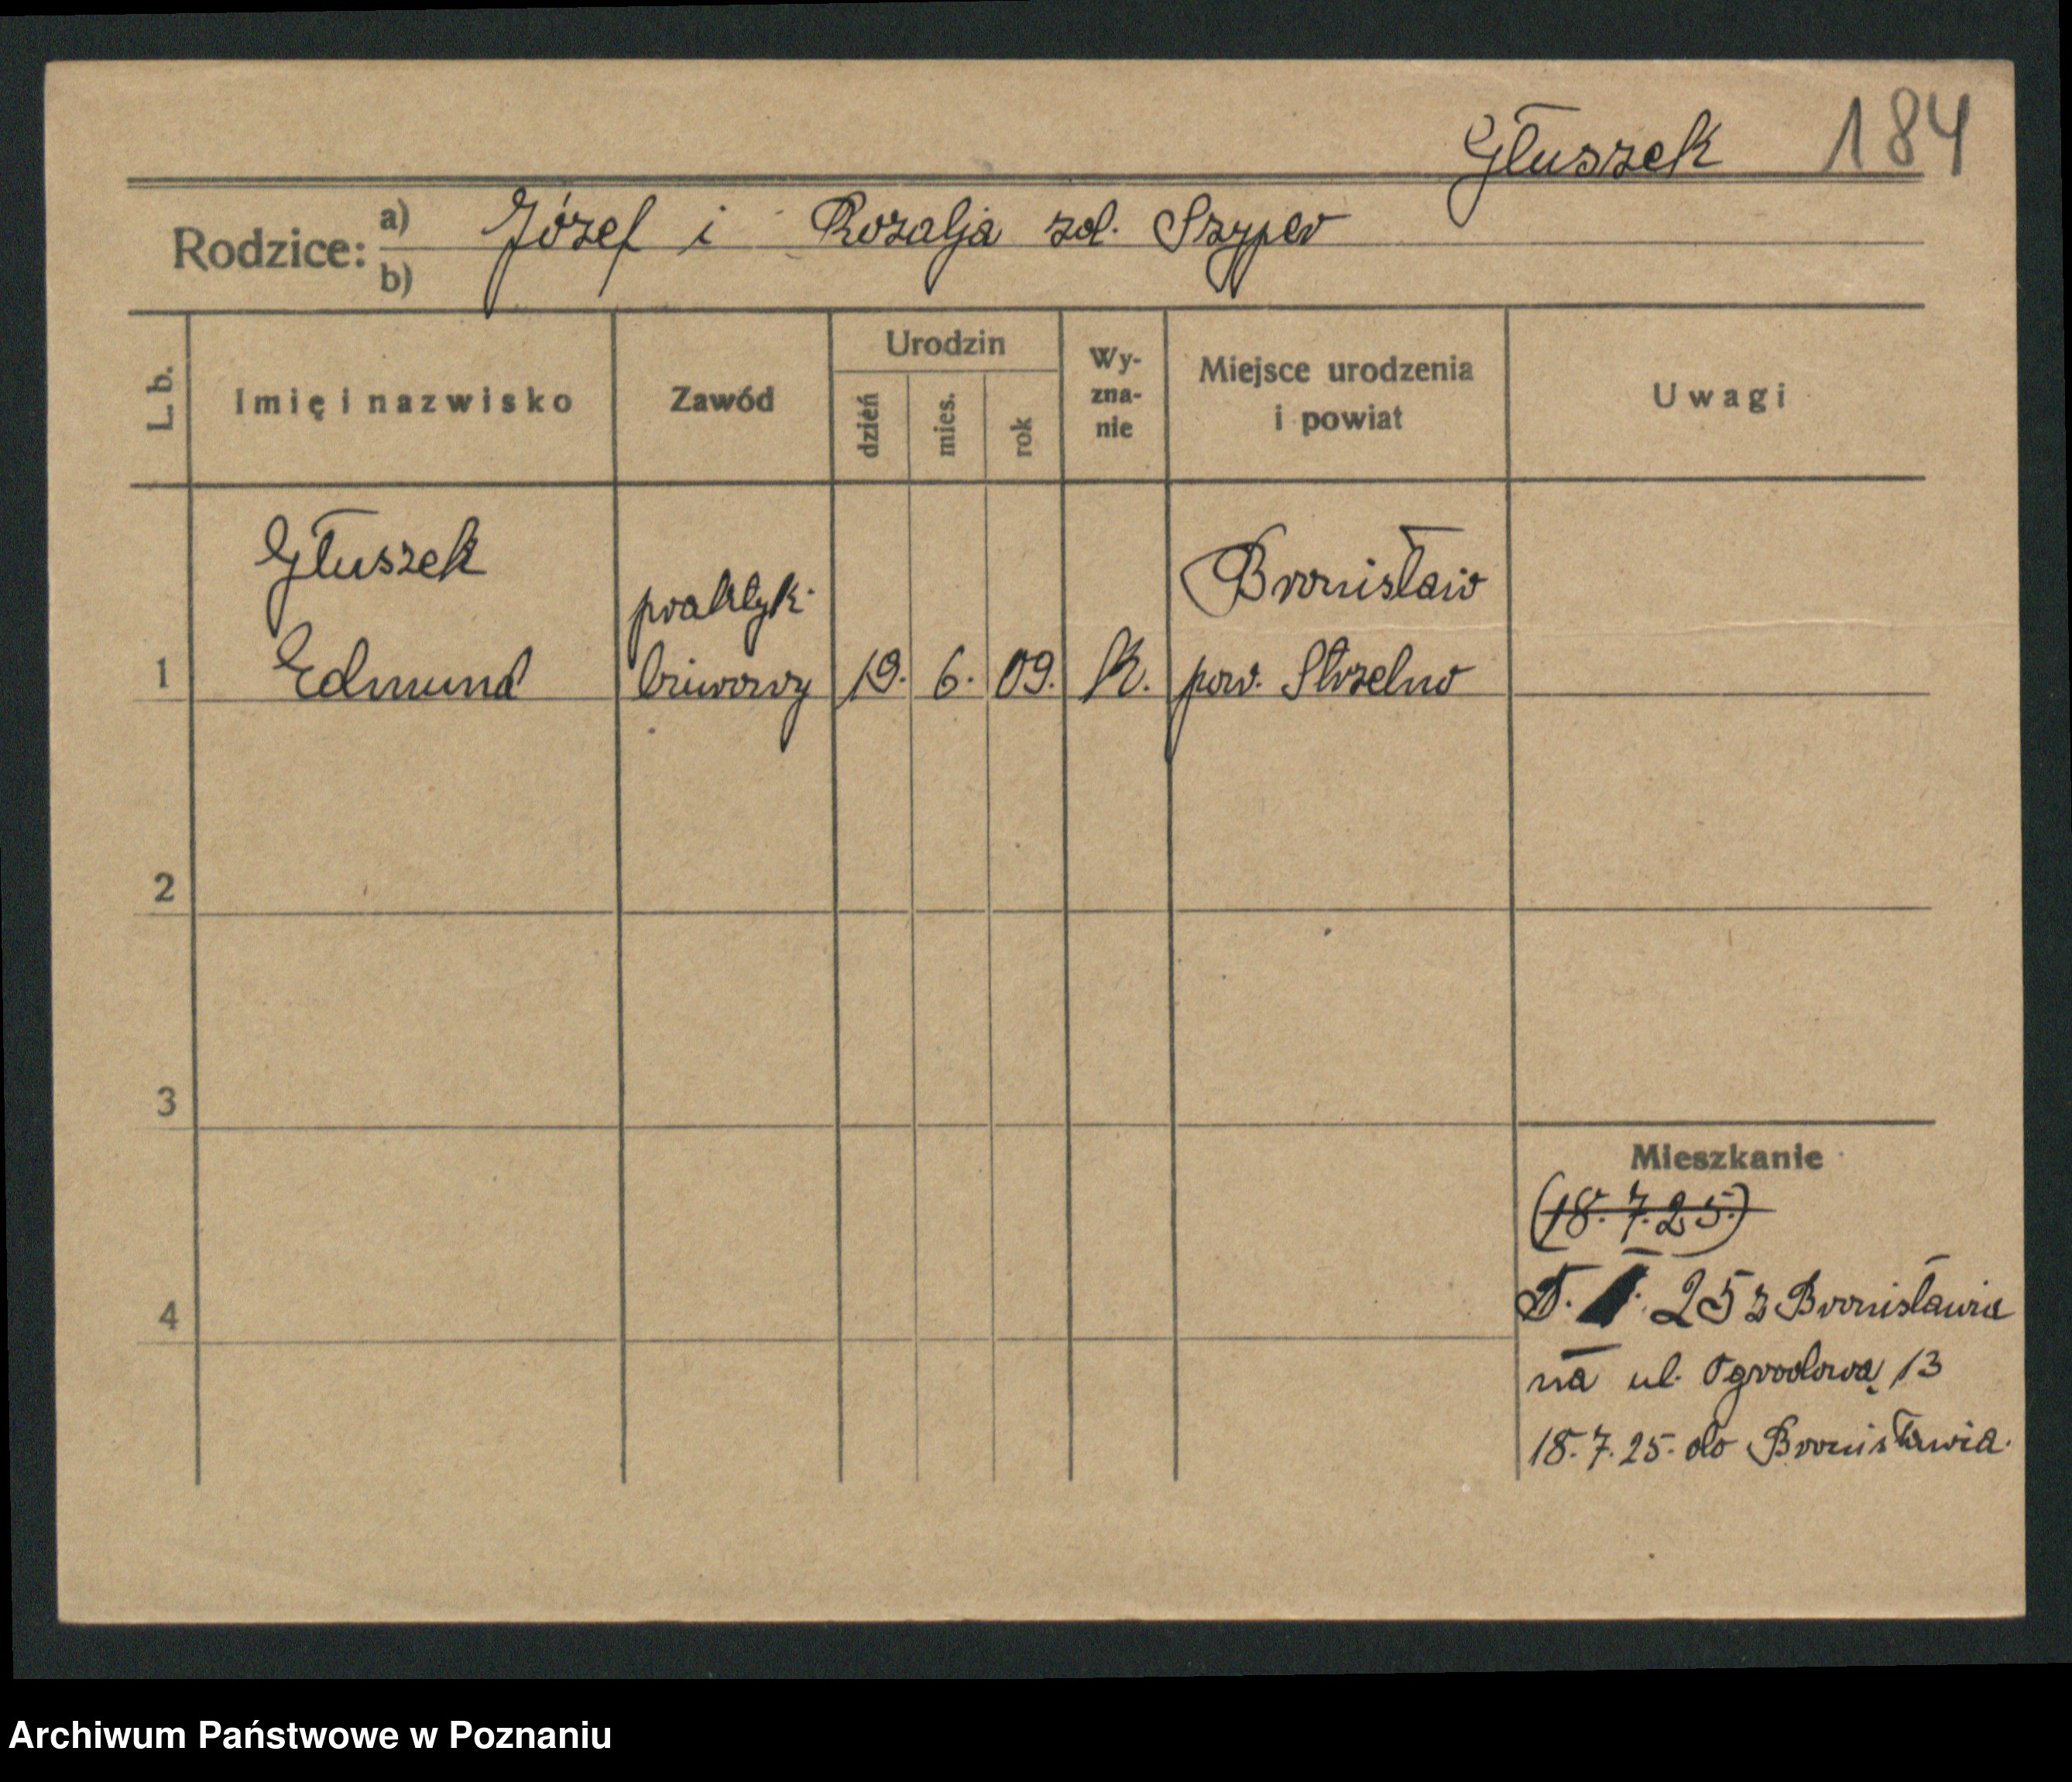 Głuszek 184
Rodzice: a) Józef i Rozalja zol. Szyper
b)
L. b. Imię i nazwisko Zawód Urodzin dzień mies. rok Wy-zna-nie Miejsce urodzenia i powiat Uwagi
Głuszek praktyk. Bronisław
1 Edmund biurowy 19. 6. 09. K. pow. Strzelno
2
3
Mieszkanie
(18. 7. 25.)
4 25 z Bronisławia
na ul. Ogrodową 13
18. 7. 25. do Bronisławia.
Archiwum Państwowe w Poznaniu